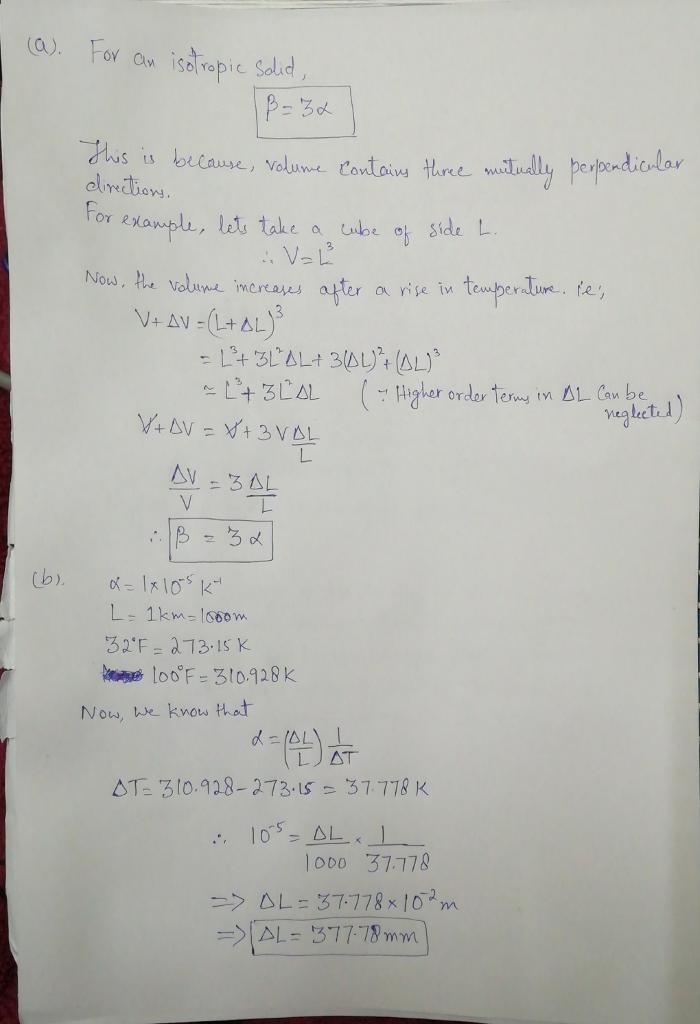 (a). For an isotropic solid,
β = 3α
This is because, volume contains three mutually perpendicular
directions.
For example, lets take a cube of side L.
∴ V = L³
Now, the volume increases after a rise in temperature. i.e;,
V + ΔV = (L + ΔL)³
= L³ + 3L²ΔL + 3(ΔL)² + (ΔL)³
≃ L³ + 3L²ΔL (∵ Higher order terms in ΔL can be
neglected)
V + ΔV = V + 3V ΔL/L
ΔV/V = 3 ΔL/L
∴ β = 3α
(b). α = 1×10⁻⁵ K⁻¹
L = 1km = 1000m
32°F = 273.15 K
100°F = 310.928 K
Now, we know that
α = (ΔL/L) 1/ΔT
ΔT = 310.928 - 273.15 = 37.778 K
∴ 10⁻⁵ = ΔL/1000 × 1/37.778
=> ΔL = 37.778 × 10⁻² m
=> ΔL = 377.78 mm